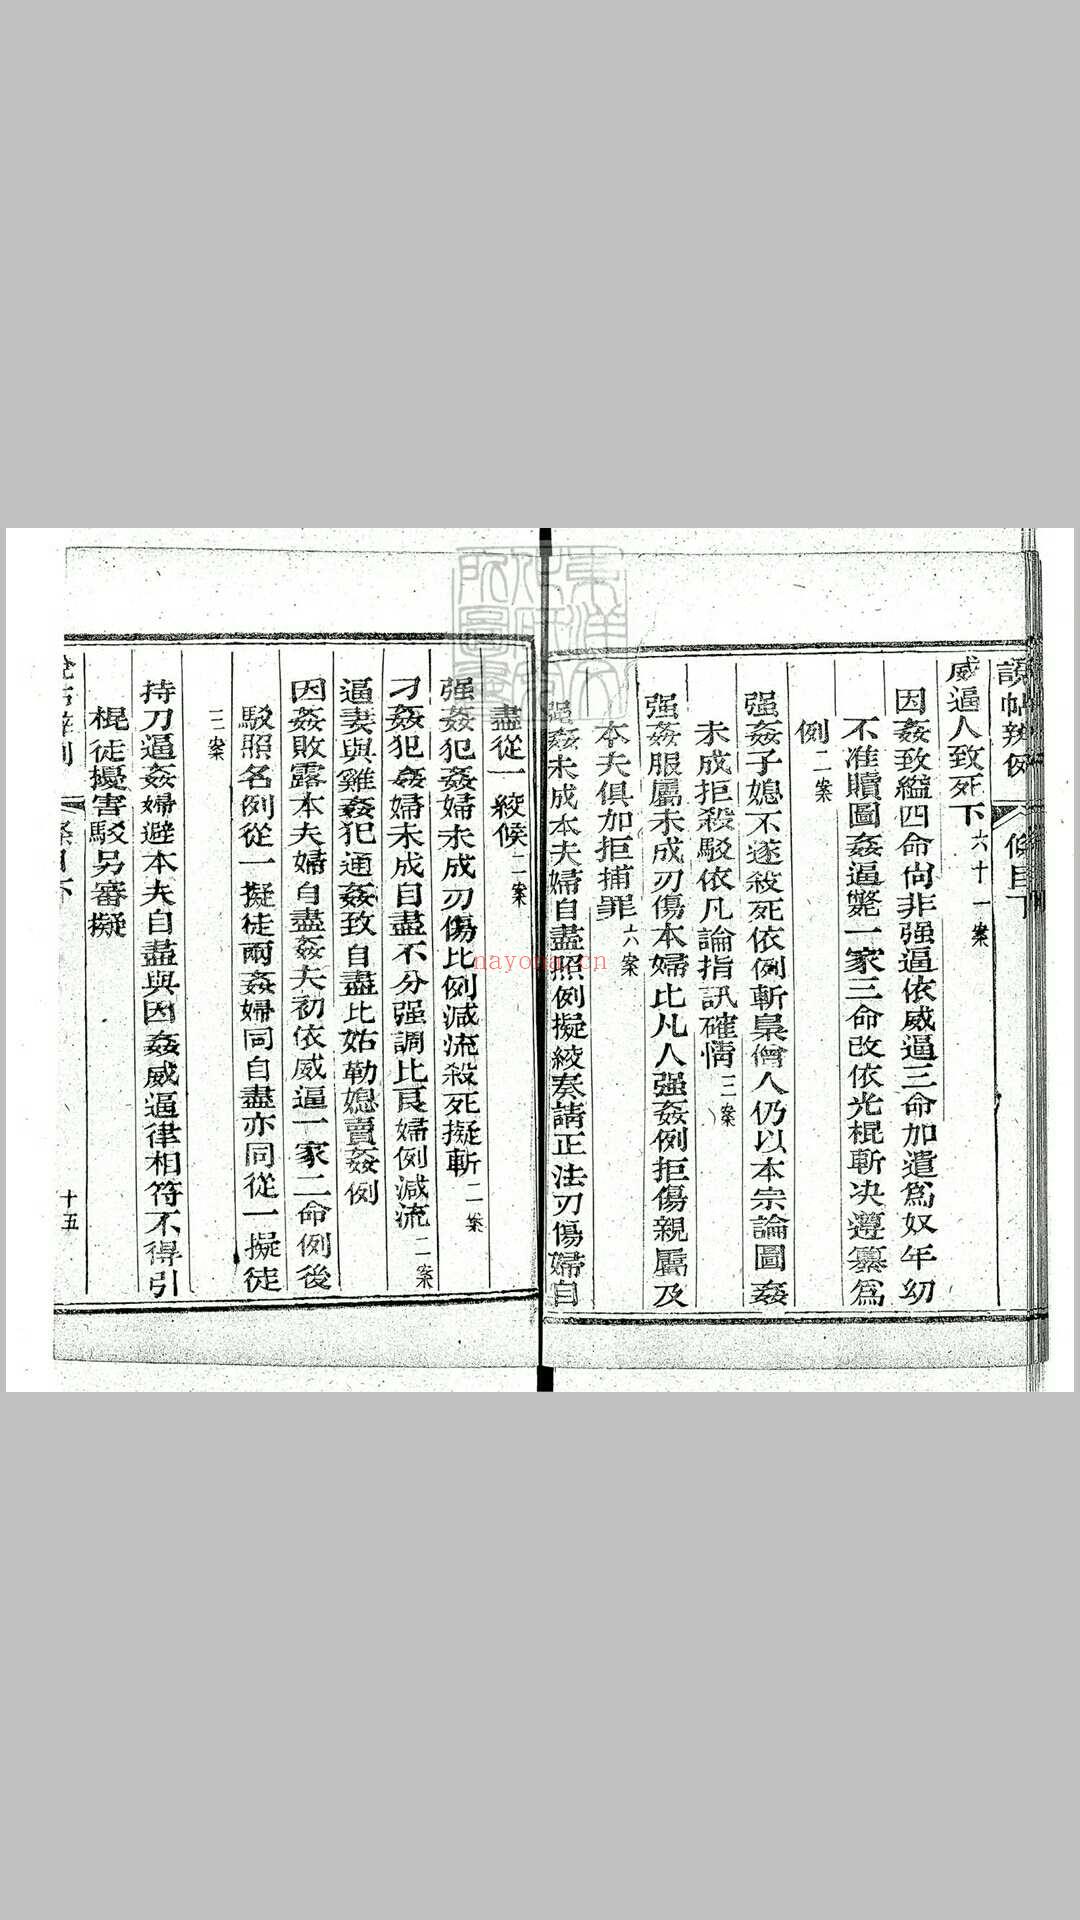 說帖辨例 條目下
威逼人致死下 六十一案
因姦致縊四命尙非强逼依威逼三命加遣爲奴年幼
不准贖圖姦逼斃一家三命改依光棍斬决遵纂爲
例 二案
强姦子媳不遂殺死依例斬梟僧人仍以本宗論圖姦
未成拒殺駁依凡論指訊確情 三案
强姦服屬未成刃傷本婦比凡人强姦例拒傷親屬及
本夫俱加拒捕罪 六案
强姦未成本夫婦自盡照例擬絞奏請正法刃傷婦自
盡從一絞候 二案
强姦犯姦婦未成刃傷比例減流殺死擬斬 二案
刁姦犯姦婦未成自盡不分强調比良婦例減流 二案
逼妻與雞姦犯通姦致自盡比姑勒媳賣姦例
因姦敗露本夫婦自盡姦夫初依威逼一家二命例後
駁照名例從一擬徒兩姦婦同自盡亦同從一擬徒
三案
持刀逼姦婦避本夫自盡與因姦威逼律相符不得引
棍徒擾害駁另審擬
條目下
十五
東洋文化研究所圖書
nayona.cn